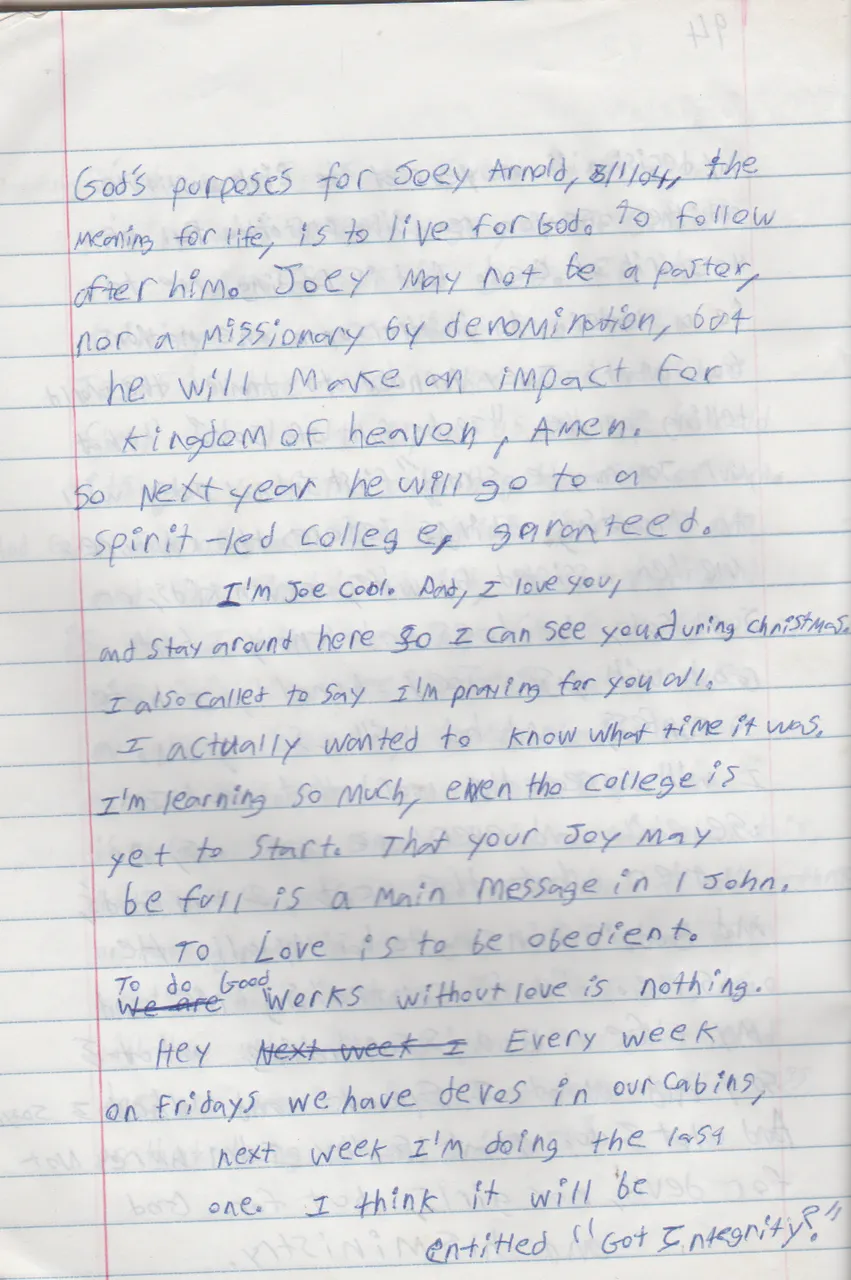 94
God's purposes for Joey Arnold, 8/1/04, the
meaning for life, is to live for God. To follow
after him. Joey may not be a paster,
nor a missionary by denomination, but
he will make an impact for
kingdom of heaven, Amen.
So Next year he will go to a
spirit-led college, garonteed.
I'm Joe Cool. Dad, I love you,
and stay around here so I can see you during christmas.
I also called to say I'm praying for you all.
I actually wanted to know what time it was.
I'm learning so much, even tho college is
yet to start. That your Joy may
be full is a main message in 1 John.
To Love is to be obedient.
To do Good
We are Works without love is nothing.
Hey Next week I Every week
on Fridays we have devos in our cabins,
next week I'm doing the last
one. I think it will be
entitled "Got Integrity?"